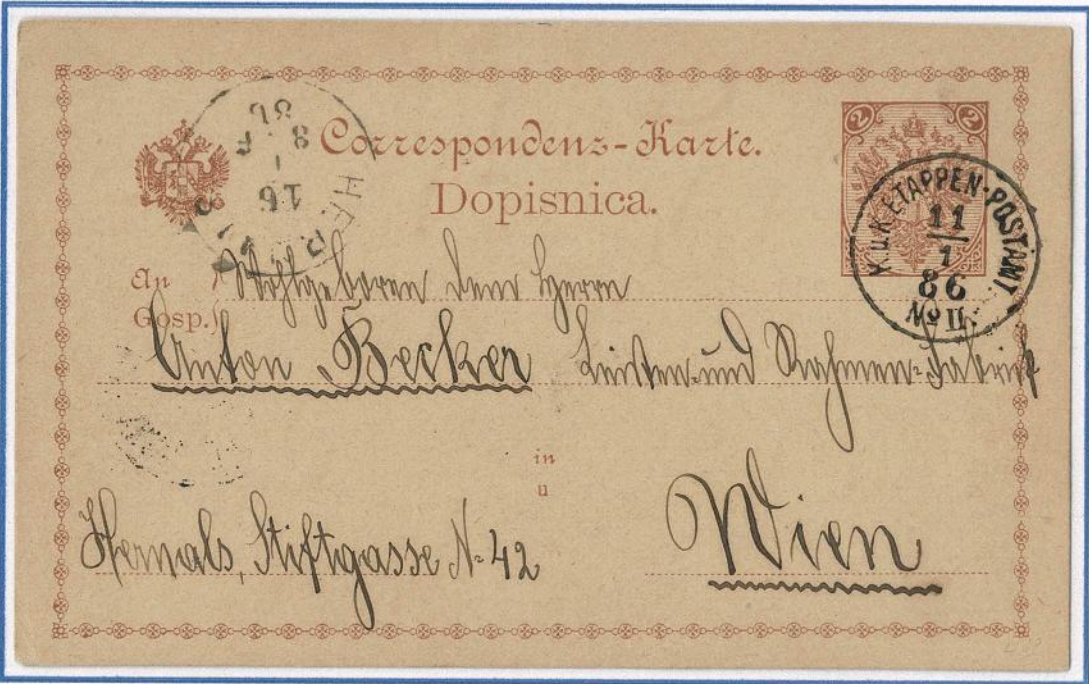 Correspondenz-Karte.
Dopisnica.
2 2
K.u.K. ETAPPEN-POSTAMT.
11
1
86
No II.
16
1
8 F
86
An Wohlgeboren dem Herrn
Gosp.
Anton Becker Leisten- und Rahmen-Fabrik
in
u
Wien
Hernals, Stiftgasse N. 42